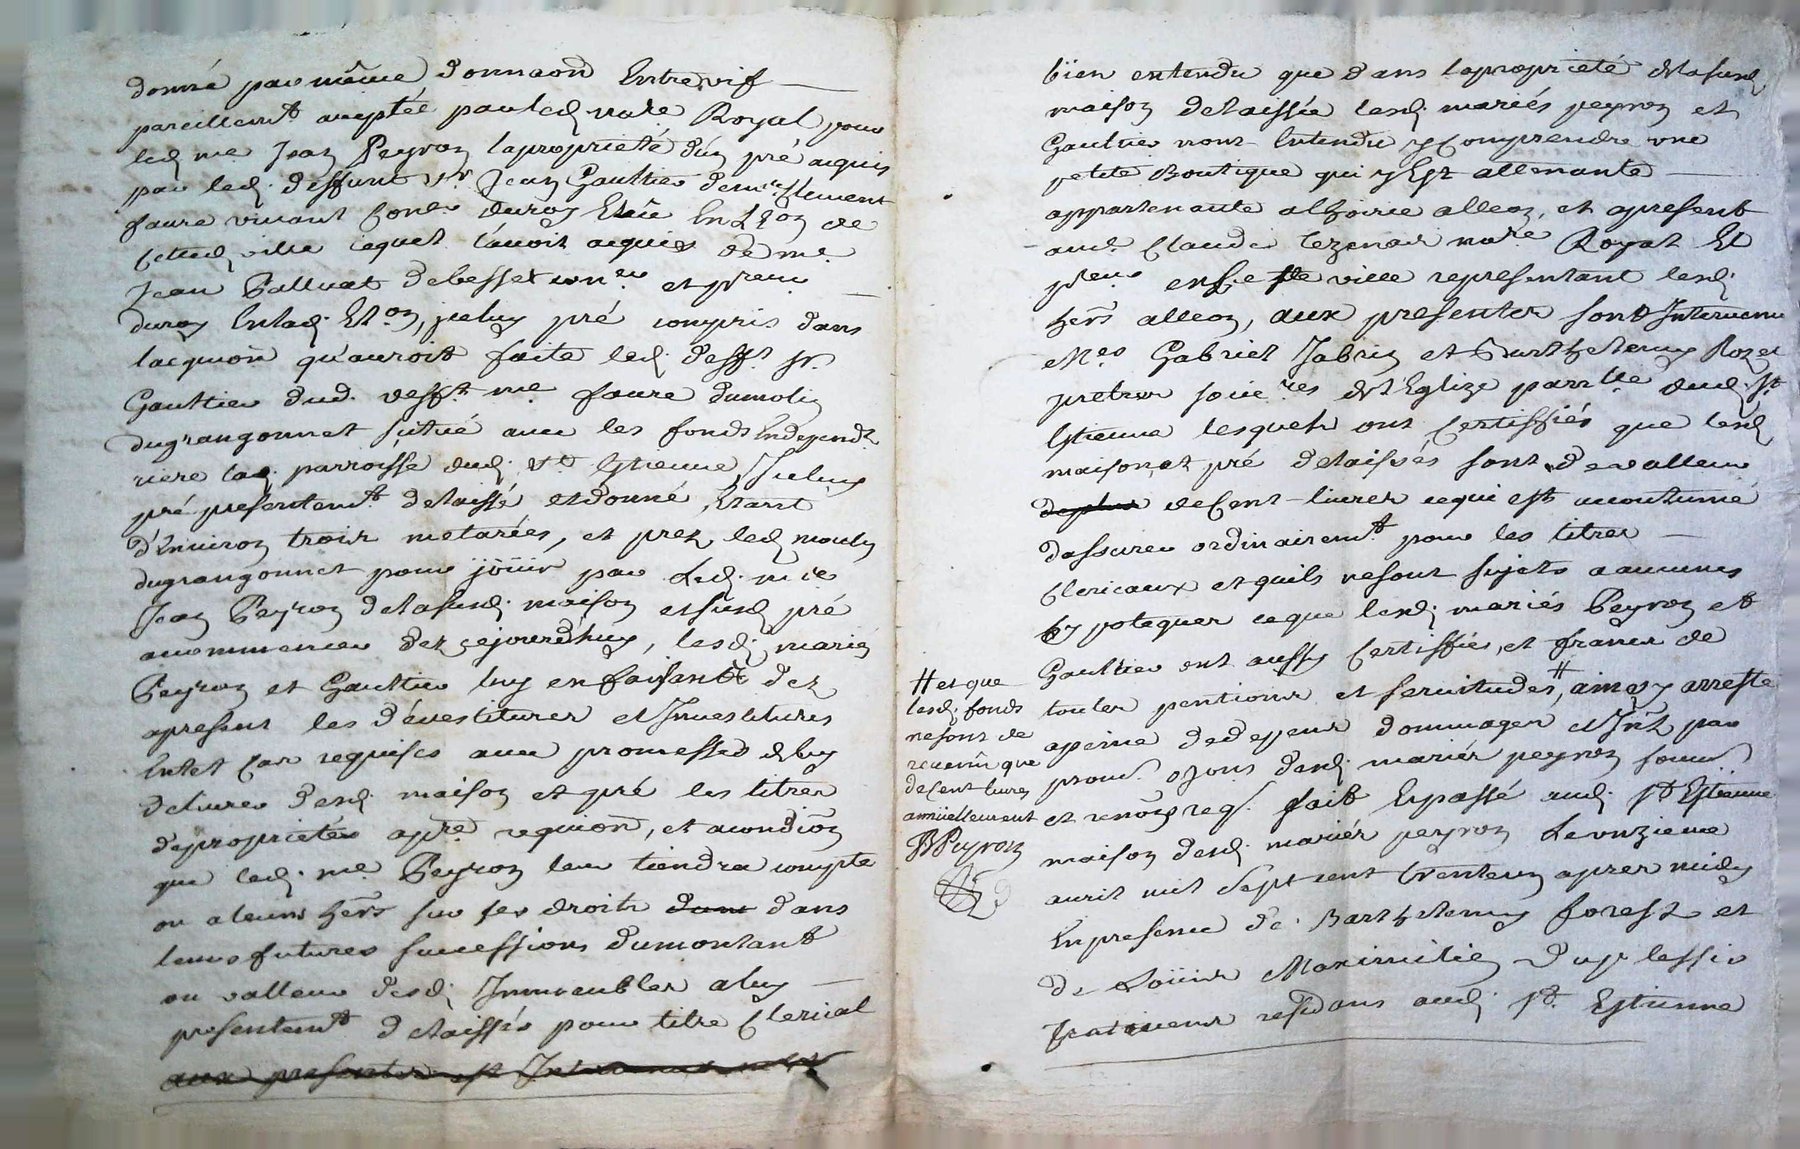 donné par même donnaõn Entrevif
pareillemt acceptée par led notre Royal pour
led me Jean Peyron la proprieté d'un pré acquis
par led. deffunt sr. Jean Gaultier de me Clement
faure vivant
cetted. ville lequel l'avoit acquis de me
Jean Palluat debesset conser et procur
duroy en lad. Eton, iceluy pré compris dans
lacquiõn qu'auroit faite led. defft sr.
Gaultier dud. defft me faure dumolin
dugrangonnet situé avec les fonds Independts
riere lad. parroisse dud. St Estienne, Iceluy
pré presentemt delaissé et donné, Etant
d'Environ trois metarées, et prez led moulin
dugrangonnet pour joüir par led. me
Jean Peyron de lasusd. maison et susd pré
acommencer dez cejourdhuy, lesd. mariés
Peyron et Gaultier luy en faisants dez
apresent les dévestitures et Investitures
Entel cas requises avec promesses de luy
delivrer desd. maison et pré les titres
de proprietés apre requiõn, et acondiõn
que led. me Peyron leur tiendra compte
ou a leurs hers sur ses droits dans dans
leurs futures successions dumontant
ou valleur desd. Immeubles a luy
presentemt delaissés pour titre Clerical
aux presentes est
bien entendu que dans la proprieté de lasusd
maison delaissée lesd. mariés peyron et
Gaultier nont Entendu y Comprendre une
petite Boutique qui y Est attenante
appartenante a l'hoirie alleon, et apresent
aud. Claude notre Royal Et
procur ence tte ville representant lesd.
hers alleon, aux presentes sont Intervenu
Mes Gabriel Jabrin et Barthelemy Rozet
pretres socie res de l'Eglize parrlle dud. St
Estienne lesquels ont Certiffiés que lesd
maison, et pré delaissés sont de valleur
deplus de Cent livres cequi est acoutumé
dassurer ordinairemt pour les titres
Clericaux et quils nesont sujets a aucunes
hypoteques ce que lesd. mariés Peyron et
Gaultier ont aussy Certiffiés, et francs de
toutes pentions et servitudes #, ainsy arresté
apeine de depens dommages et Intz par
prom. desd. mariés peyron soum.
et renõn req. fait Et passé aud. St Estienne
maison desd. mariés peyron Le onzieme
avril mil Sept cent trenteun apres midy
En presence de Barthelemy forest et
de Loüis Maximilien Duplessis
Praticiens residans aud. St. Estienne
# et que
lesd. fonds
nesont de
revenû que
de Cent livres
annüellement
BPeyron